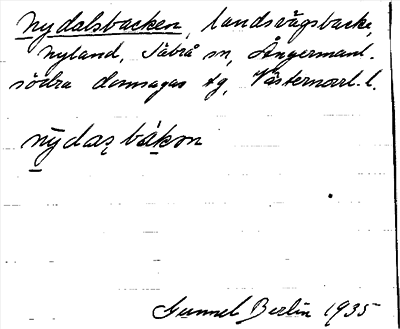 Nydalsbacken, landsvägsbacke,
Nyland, Säbrå sn, Ångermanl.
södra domsagas tg, Västernorrl. l.
nȳdaʂ bákən
Gunnel Berlin 1935